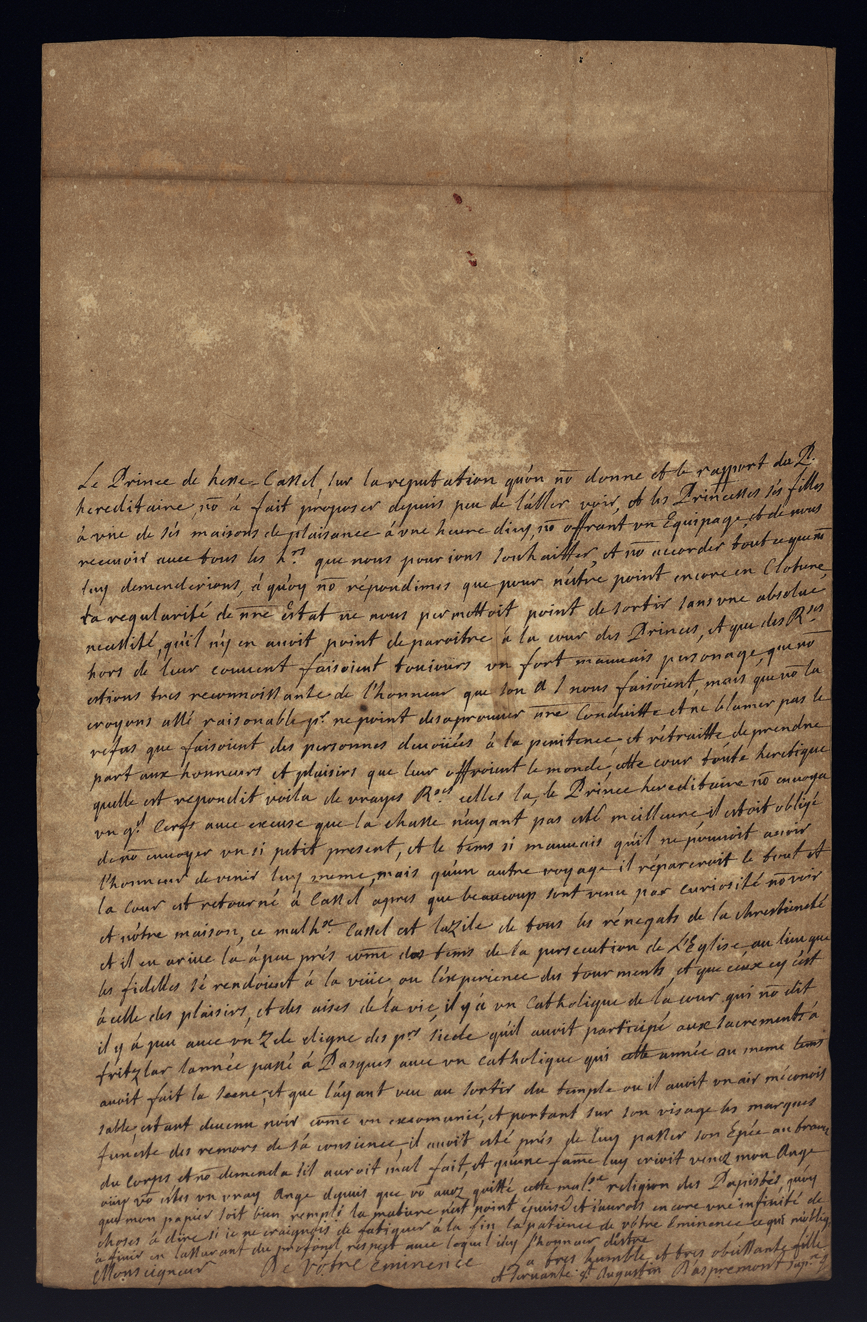 Le Prince de hesse-Cassel, sur la reputation qu'on nō donne et le rapport du P.
hereditaire, nō à fait proposer depuis peu de l'aller voir, et les Princesses ses filles
à vne de ses maisons de plaisance à vne heure dicy, nō offrant vn Equipage, et de nous
receuoir auec tous les h.rs que nous pourions souhaitter, et nō accorder tout ce que nō
luy demenderions, à quoy nō répondimes que pour nêtre point encore en Cloture,
la regularité de nr̄e Estat ne nous permettoit point de sortir sans vne absolue
necessité, qu'il n'y en auoit point de paroitre à la cour des Princes, et que des R.ses
hors de leur conuent faisoient toujours vn fort mauuais personage, que nō
estions tres reconnoissante de l'honneur que son A S nous faisoient, mais que nō la
croyons assé raisonable p.r ne point desaprouuer nr̄e Conduitte et ne blamer pas le
refus que faisoient des personnes deuoüées à la penitence et rétraitte de prendre
part aux honneurs et plaisirs que leur offroient le monde, cette cour toute heretique
quelle est repondit voila de vrayes R.ses celles la, le Prince hereditaire nō enuoya
vn g.d Cerfs auec excuse que la chasse n'ayant pas esté meilleure il estoit obligé
de nō enuoyer vn si petit present, et le tems si mauuais qu'il ne pouuoit auoir
l'honneur de venir luy meme, mais qu'vn autre voyage il répareroit le tout et
la Cour est retourné à Cassel apres que beaucoup sont venu par curiosité nō voir
et nôtre maison, ce malh.se Cassel est lazile de tous les rénegats de la chrestienté
et il en ariue la à peu prés com̄e des tems de la persecution de L'Eglise au lieu que
les fidelles se rendoient à la vüie, ou l'éxperience des tourments, et que céux cy c'est
à celle des plaisirs, et des aises de la vie, il y à vn Catholique de la cour qui nō dit
il y à peu auec vn Zele digne des p.rs siecle qu'il auoit participé aux sacrements à
fritzlar lannée passé à Pasques auec vn Catholique qui cette année au meme tems
auoit fait la scene, et que l'ayant veu au sortir du temple ou il auoit vn air méconois
sable, estant deuenu noir com̄e vn excomunié, et portant sur son visage les marques
funeste des remors de sa consience il auoit esté prés de luy passer son Epée au trauers
du corps et nō demenda s'il auroit mal fait, et qu'vne fam̄e luy crioit venez mon Ange
oüy vō estes vn vray Ange depuis que vō auez quitté cette mal.se religion des Papistes, quoy
que mon papier soit bien rempli la matiere n'est point épuisée et jaurois encore vne infinité de
choses à dire si ie ne craignois de fatiguer à la fin la patience de vôtre Eminence ce qui m'oblige
à finir en l'assurant du profond respect auec lequel i'ay l'honneur d'estre
Monseigneur De Votre Eminence La tres humble et tres obeissante fille
et seruante S.r Augustin D'aspremont sup.re